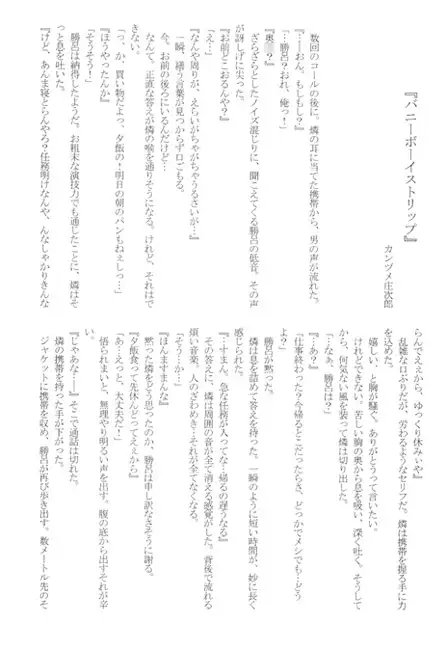 『バニーボーイストリップ』
カンヅメ庄次郎
数回のコールの後に、燐の耳に当てた携帯から、男の声が流れた。
『……おん。もしもし？』
「…勝呂？おれ、俺っ！」
『奥
ざらざらとしたノイズ混じりに、聞こえてくる勝呂の低音。その声
が訝しげに尖った。
『お前どこおるんや？』
「え…」
『なんや周りが、えらいがちゃがちゃうるさいが…』
一瞬、繕う言葉が見つからず口ごもる。
今、お前の後ろにいるんだけど…
なんて、正直な答えが燐の喉を通りそうになる。けれど、それはで
きない。
「っ、か、買い物だよっ、夕飯の！明日の朝のパンもねぇしっ…」
『ほうやったんか』
「そうそう！」
勝呂は納得したようだ。お粗末な演技力でも通じたことに、燐はそ
っと息を吐いた。
『けど、あんま寝とらんやろ？任務明けなんや、んなしゃかりきんな
らんでええから、ゆっくり休みぃや』
乱雑な口ぶりだが、労わるようなセリフだ。燐は携帯を握る手に力
を込めた。
嬉しい、と胸が騒ぐ。ありがとうって言いたい。
けれどできない。苦しい胸の奥から息を吸い、深く吐く。そうして
から、何気ない風を装って燐は切り出した。
「…なぁ、勝呂は？」
『…あ？』
「仕事終わった？今帰るとこだったらさ、どっかでメシでも…どう
よ？」
勝呂が黙った。
燐は息を詰めて答えを待った。一瞬のように短い時間が、妙に長く
感じられた。
『…すまん。急な任務が入ってな…帰るの遅うなる』
その答えに、燐は周囲の音が全て消える感覚がした。背後で流れる
煩い音楽、人のざわめき…それが全てなくなる。
「そう…か…」
『ほんますまんな』
黙った燐をどう思ったのか、勝呂は申し訳なさそうに謝る。
『夕飯食って先休んどってええから』
「あ…えっと、大丈夫だ！」
悟られまいと、無理やり明るい声を出す。腹の底から出すそれが辛
い。
『じゃあな……』そこで通話は切れた。
燐の携帯を持った手が下がった。
ジャケットに携帯を収め、勝呂が再び歩き出す。数メートル先のそ